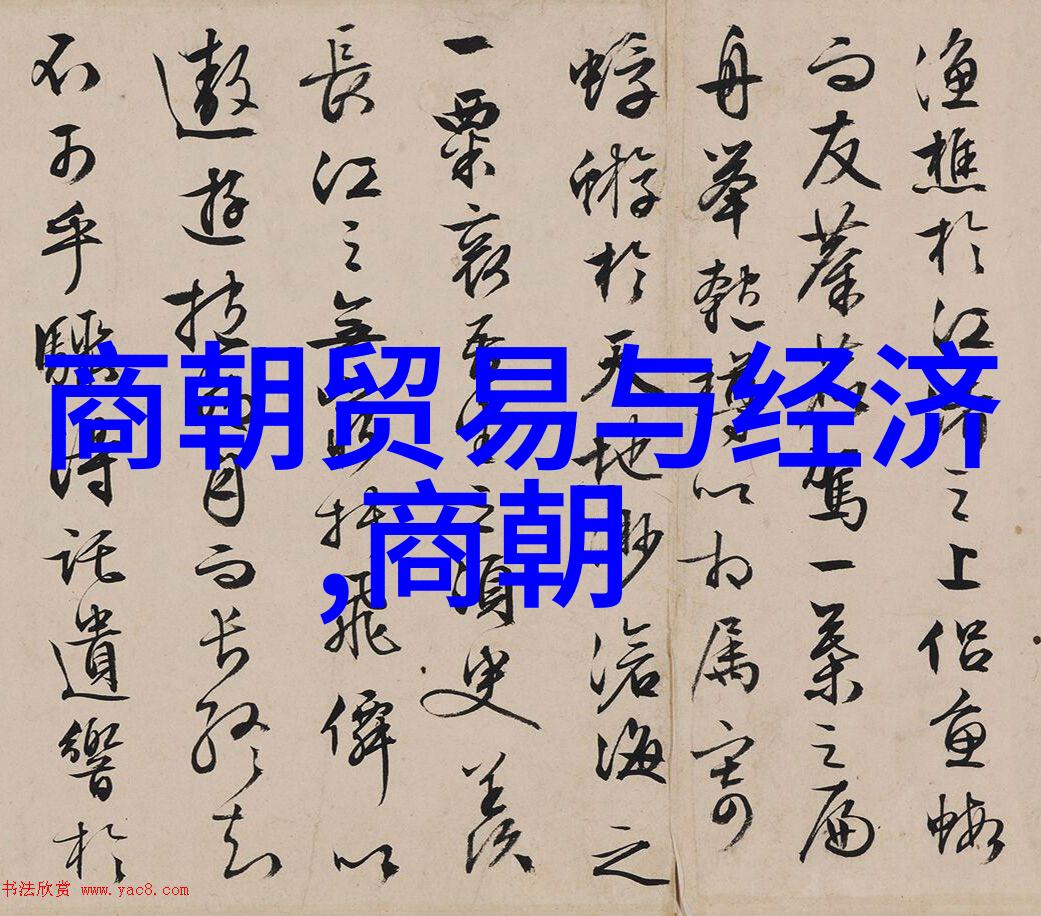 商朝贸易与经济
,商朝
渔樵於江渚之上侣鱼蝦
而友麋鹿駕一葉之扁
舟举匏樽以相属寄
蜉蝣於天地渺滄海之
一粟哀吾生之須臾羨
長江之無窮挟飛僊以
遨遊抱明月而长终知
不可乎驟得託遺響於
书法欣赏 www.yac8.com